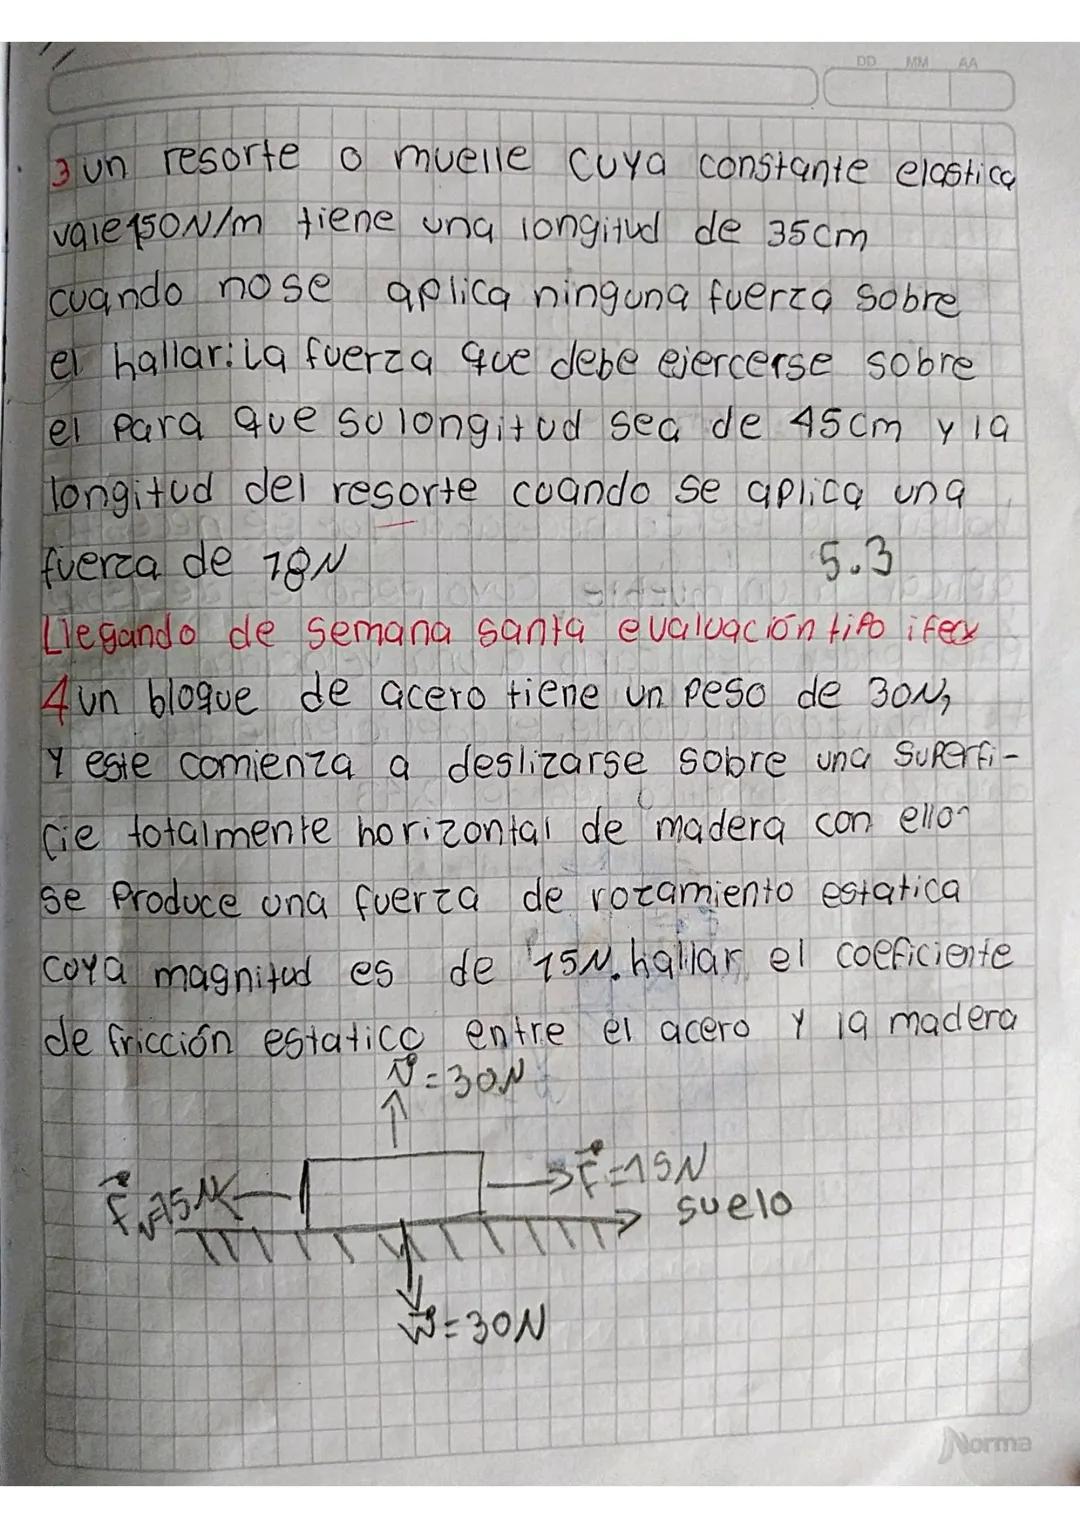 DD MM AA
3 un resorte o muelle cuya constante elastica
vale 150N/m tiene una longitud de 35cm
cuando nose aplica ninguna fuerza sobre
el hallar: La fuerza que debe ejercerse sobre
el para que su longitud sea de 45cm y la
longitud del resorte cuando se aplica una
fuerza de 18N 5.3
Llegando de semana santa evaluación tipo ifex
4 un bloque de acero tiene un peso de 30N,
y este comienza a deslizarse sobre una superfi-
cie totalmente horizontal de madera con ello
se produce una fuerza de rozamiento estatica
cuya magnitud es de 15N. hallar el coeficiente
de fricción estatico entre el acero y la madera
N=30N
F=15N
suelo
W=30N
Norma